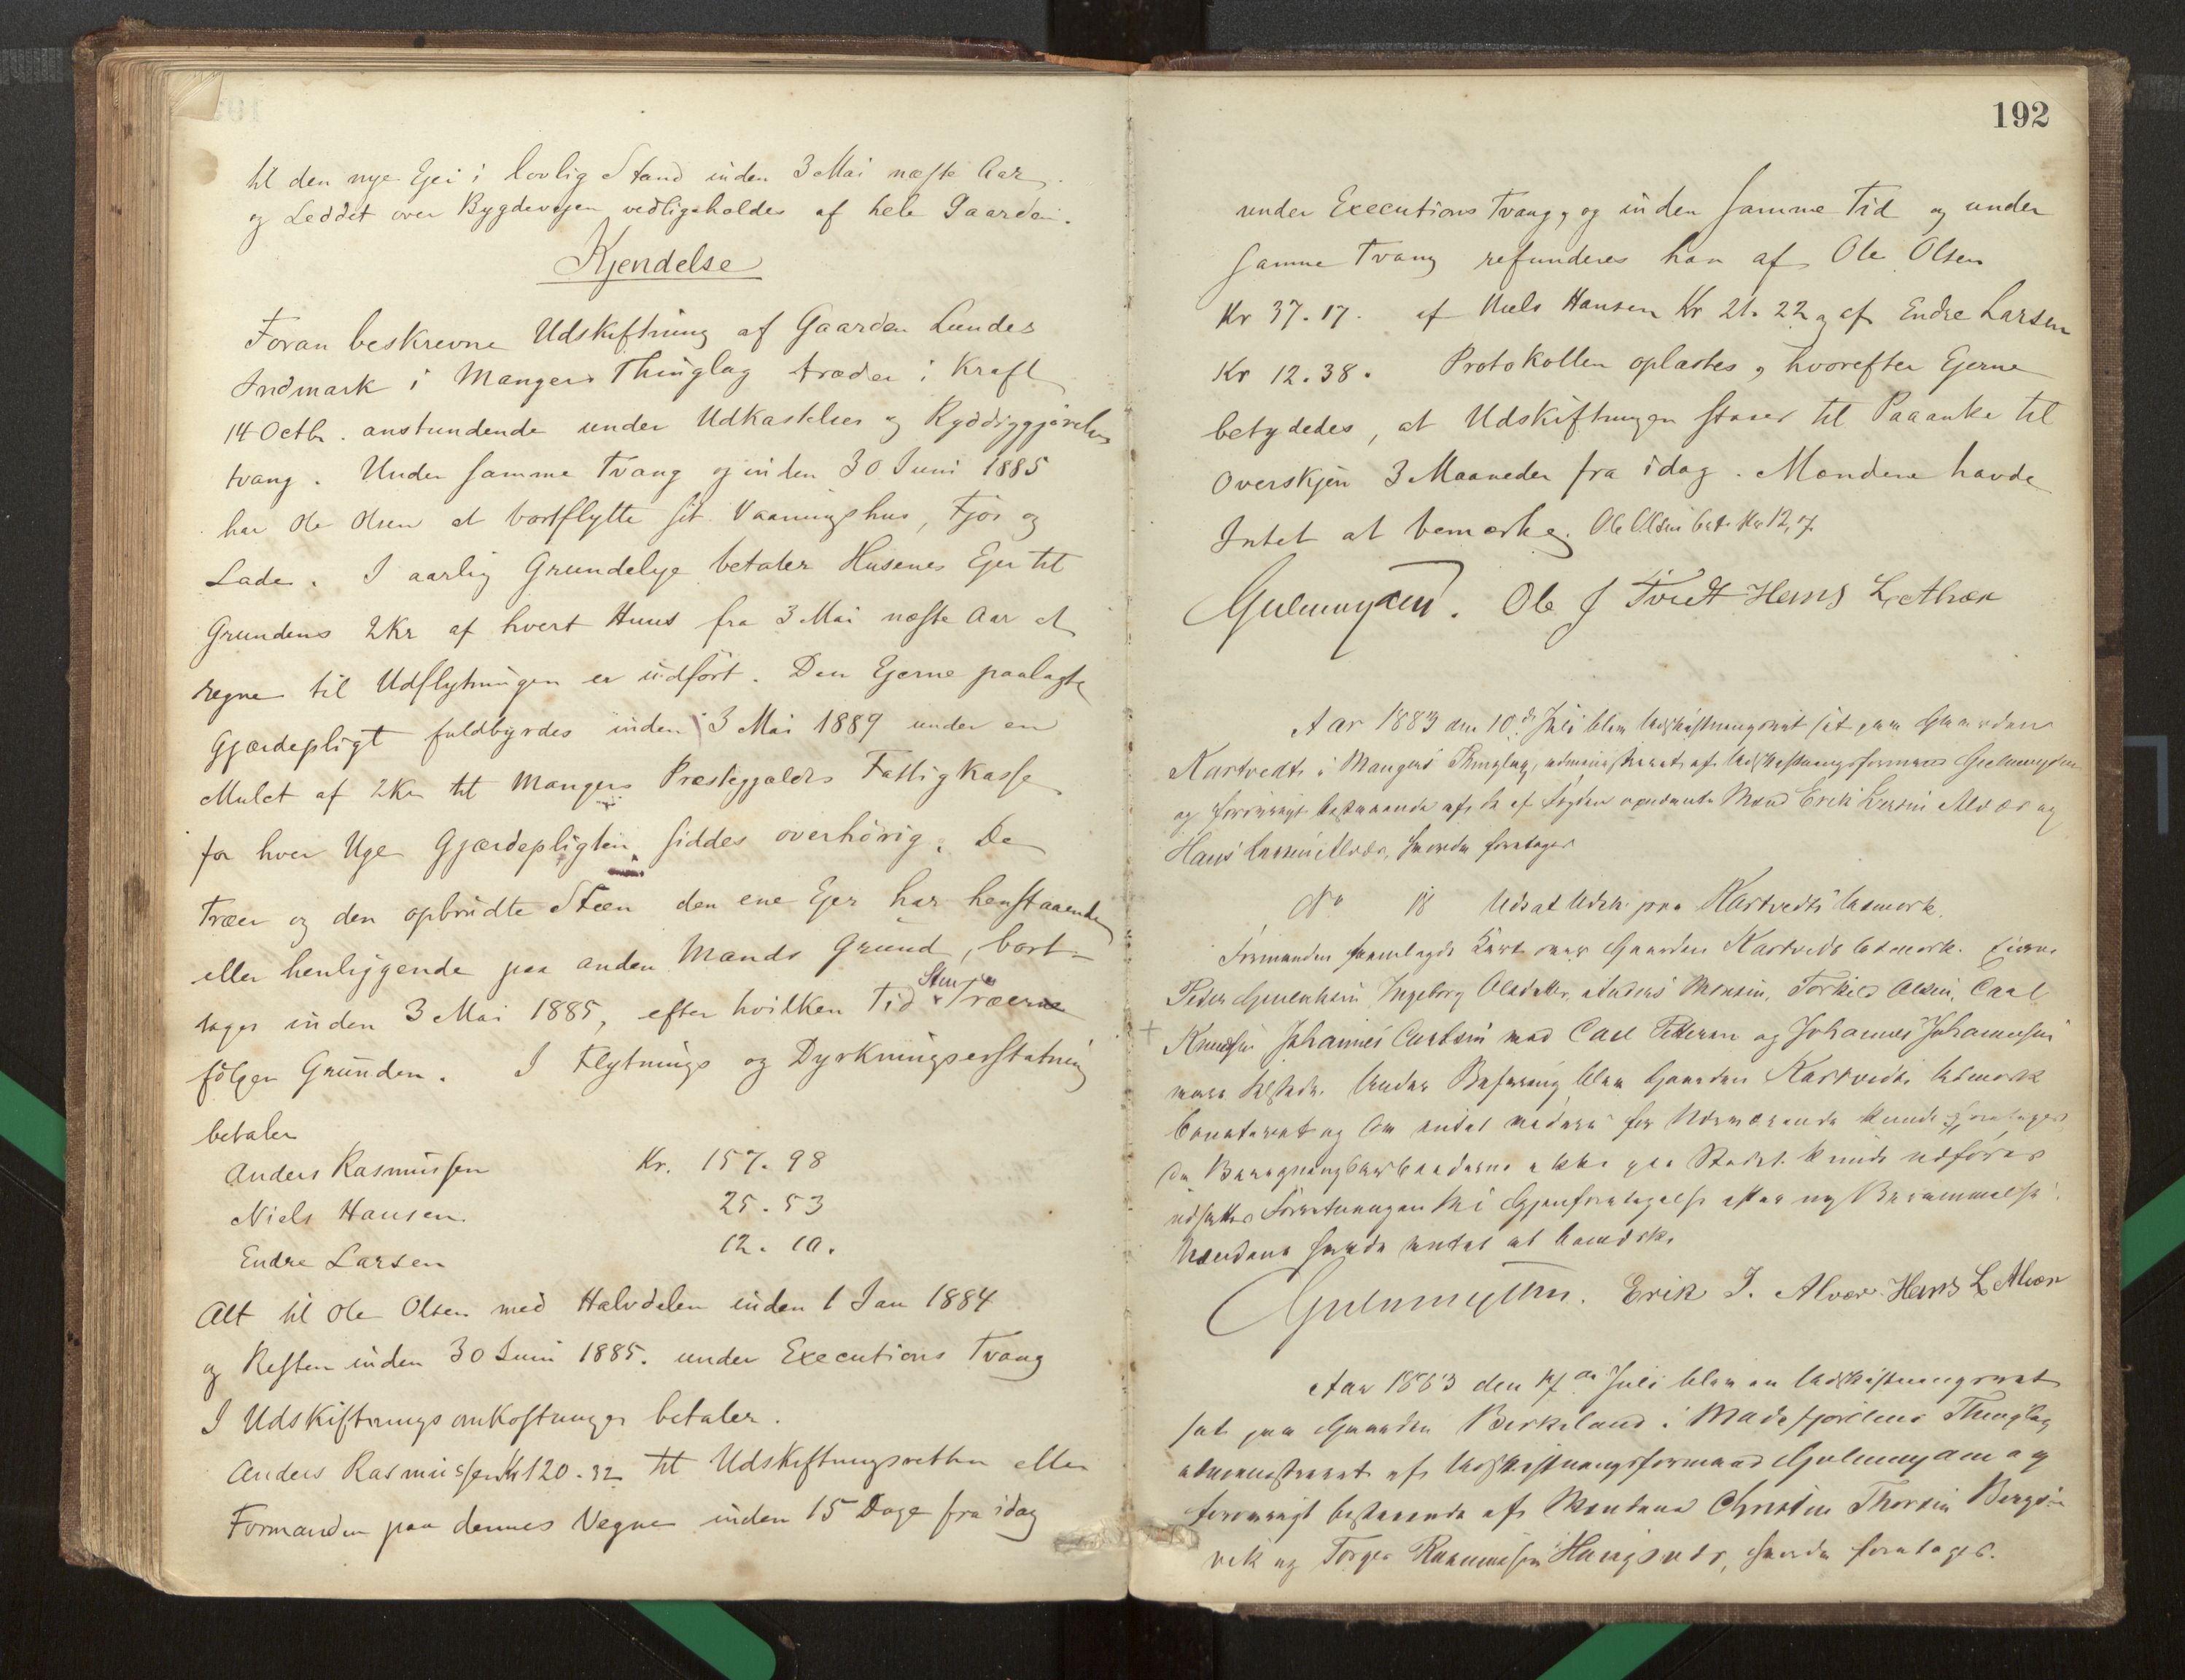 til den nye Ejer i lovlig Stand inden 3 Mai næste Aar
og Leddet over Bygdevejen vedligeholdes af hele Gaarden.
Kjendelse
Foran beskrevne Udskiftning af Gaarden Lundes
Indmark i Mangers Thinglag træder i Kraft
14 Octbr. anstundende under Udkastelses og Ryddiggjørelses
tvang. Under samme Tvang og inden 30 Juni 1885
har Ole Olsen at bortflytte sit Vaaningshus, Fjøs og
Lade. I aarlig Grundeleje betaler Husenes Ejer til
Grundens 2 Kr af hvert Huus fra 3 Mai næste Aar at
regne til Udflytningen er udført. Den Ejerne paalagte
Gjærdepligt fuldbyrdes inden 3 Mai 1889 under en
Mulct af 2 Kr til Mangers Præstegjælds Fattigkasse
for hver Uge Gjærdepligten siddes overhørig. De
Træer og den opbrudte Steen den ene Ejer har henstaaende
eller henliggende paa anden Mands Grund, bort-
Sten og
tages inden 3 Mai 1885, efter hvilken Tid Træerne
følger Grunden. I Flytnings og Dyrkningserstatning
betaler
Anders Rasmussen Kr. 157.98
Niels Hansen 25.53
Endre Larsen 12.10.
Alt til Ole Olsen med Halvdelen inden 1 Jan 1884
og Resten inden 30 Juni 1885. under Executions Tvang
I Udskiftningsomkostninger betaler.
Anders Rasmussen Kr 120.32 til Udskiftningsretten eller
Formanden paa dennes Vegne inden 15 Dage fra idag
192
under Executions Tvang, og inden samme Tid og under
samme Tvang refunderes han af Ole Olsen
Kr 37.17. af Niels Hansen Kr 21.22 og af Endre Larsen
Kr 12.38. Protokollen oplæstes, hvorefter Ejerne
betydedes, at Udskiftningen staaer til Paaanke til
Overskjøn 3 Maaneder fra idag. Mændene havde
Intet at bemærke. Ole Olsen bet. Kr 12,7.
Gulmyden. Ole J Tvedt Hans L. Alvær
Aar 1883 den 10de Juli blev Udskiftningsret sat paa Gaarden
Kartvedt i Mangers Thinglag, administreret af Udskiftningsformand Gulmyden
og forøvrigt bestaaende af de af Fogden opnævnte Mænd Erik Alvær og
Hans Larsen Alvær, hvorda foretoges
No 18 Udskiftn. paa Kartvedts Udmark.
Formanden fremlagde Kart over Gaarden Kartvedts Udmark. Eierne
Peder Ingeborg Olsdatter, Anders Monsen, Torkild Olsen, Carl
+ Knudsen Johannes Carlsen med Carl Pettersen og Johannes Johannesen
vare tilstede. Under Befaring blev Gaarden Kartvedts Udmark
boniteret og Da intet videre for Nærværende kunde foretages
da Beregningsarbeiderne ikke paa Stedet kunde udføres
udsættes Forretningen til Gjenforetagelse efter ny Berammelse.
Mændene havde intet at bemærke
Gulmyden. Erik J. Alvær Hans L Alvær
Aar 1883 den 17de Juli blev en Udskiftningsret
sat paa Gaarden Birkeland i Madsfjordens Thinglag
administreret af Udskiftningsformand Gulmyden og
forøvrigt bestaaende af Mændene Christen Thorsen Bergs-
vik og Torger Rasmussen hvorda foretoges.